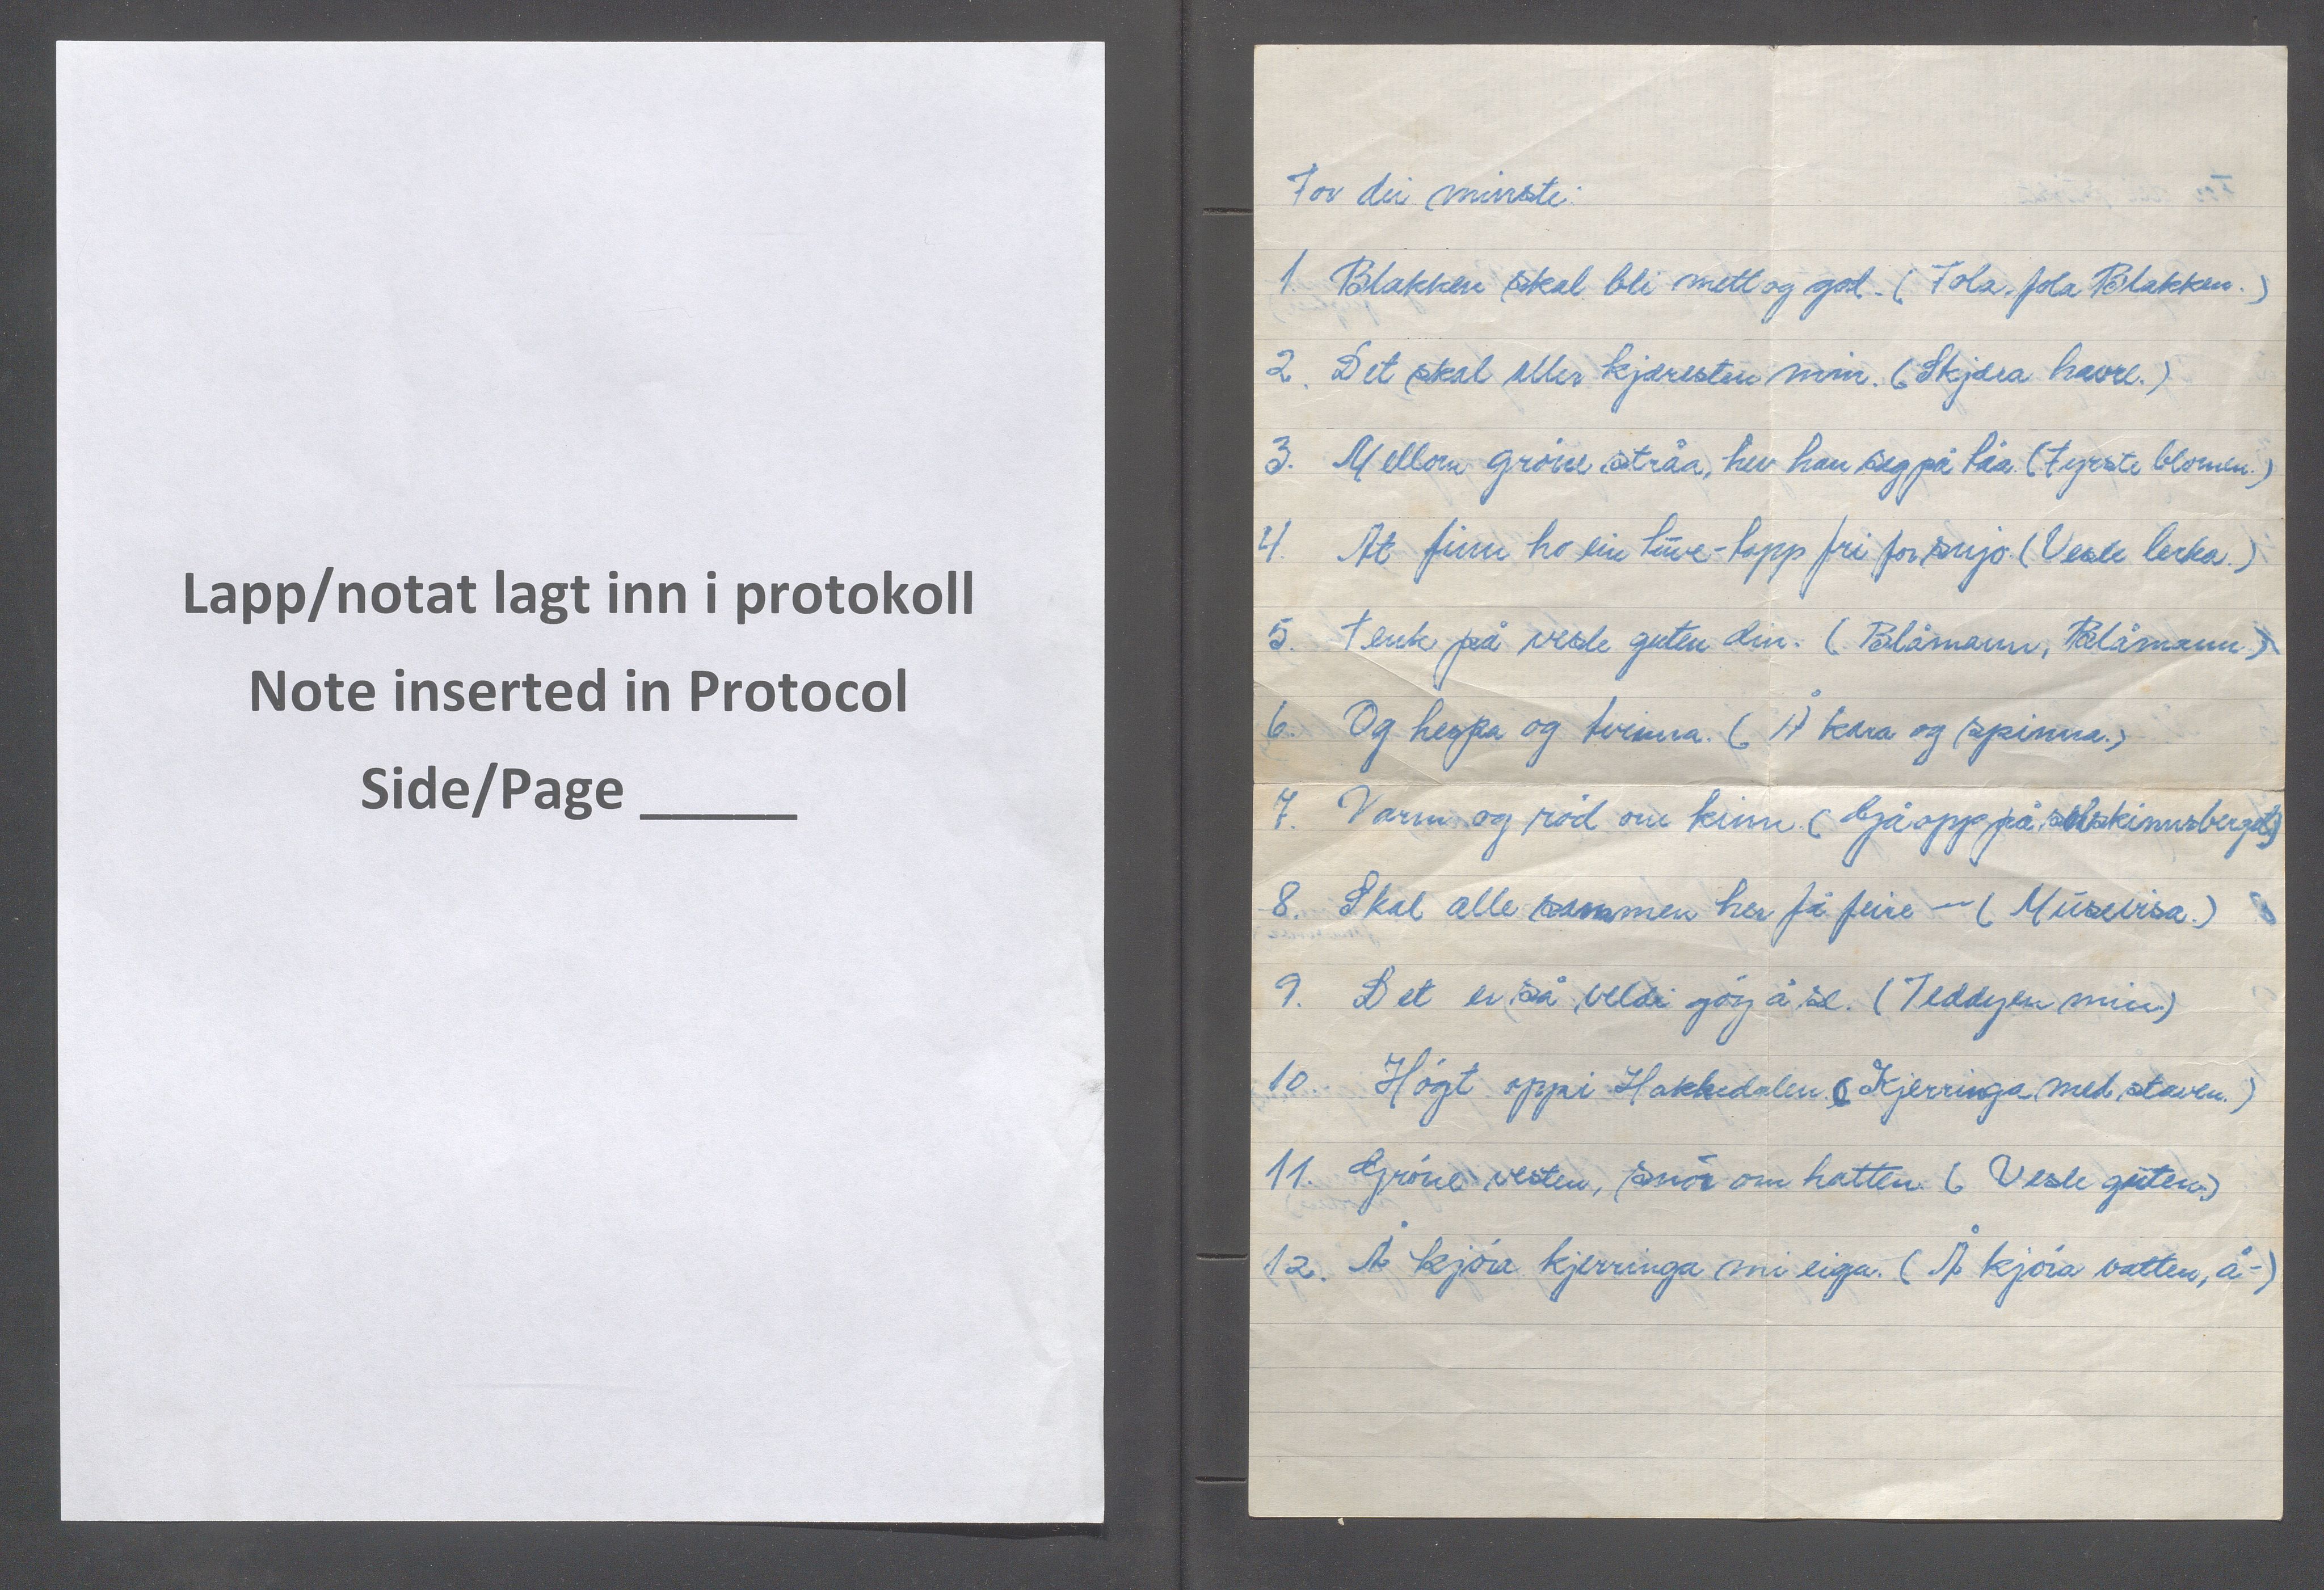 Lapp/notat lagt inn i protokoll
Note inserted in Protocol
Side/Page _____
For dei minste:
1. Blakken skal bli mett og god. (Fola, fola Blakken.)
2. Det skal eller kjæresten min. (Skjæra havre.)
3. Mellom gróne stråa, hev han seg på tåa. (Fyrste blomen.)
4. At finn ho ein tuve-topp fri for snjo. (Vesle lerka.)
5. Tenk på vesle guten din. (Blåmann, Blåmann)
6. Og hespa og tvinna. (Å kara og spinna.)
7. Varm og ród om kinn. (Gjå opp på solskinnsberget)
8. Skal alle sammen her få feire — (Musevisa.)
9. Det er så veldi góy å se. (Teddyen min)
10. Hógt oppi Hakkedalen. (Kjerringa med staven.)
11. Gróne vesten, snór om hatten. (Vesle guten.)
12. Å kjóra kjerringa mi eiga. (Å kjóra vatten, å-)